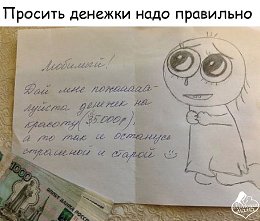 Просить денежки надо правильно
Любимый!
Дай мне пожалуй-
луйста денежек на
красоту (35000р),
а то так и останусь
страшной и старой
1000